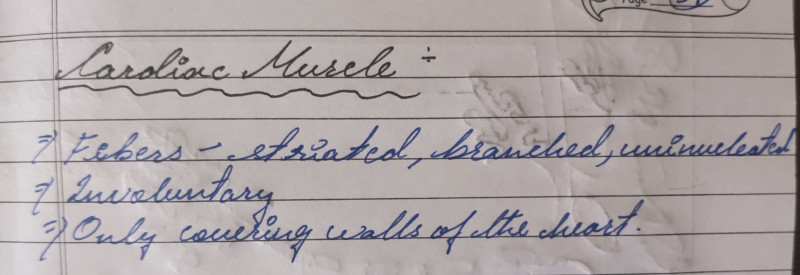 Page
Cardiac Muscle ÷
⇒ Febers - striated, branched, uninucleated
⇒ Involuntary
⇒ Only covering walls of the heart.